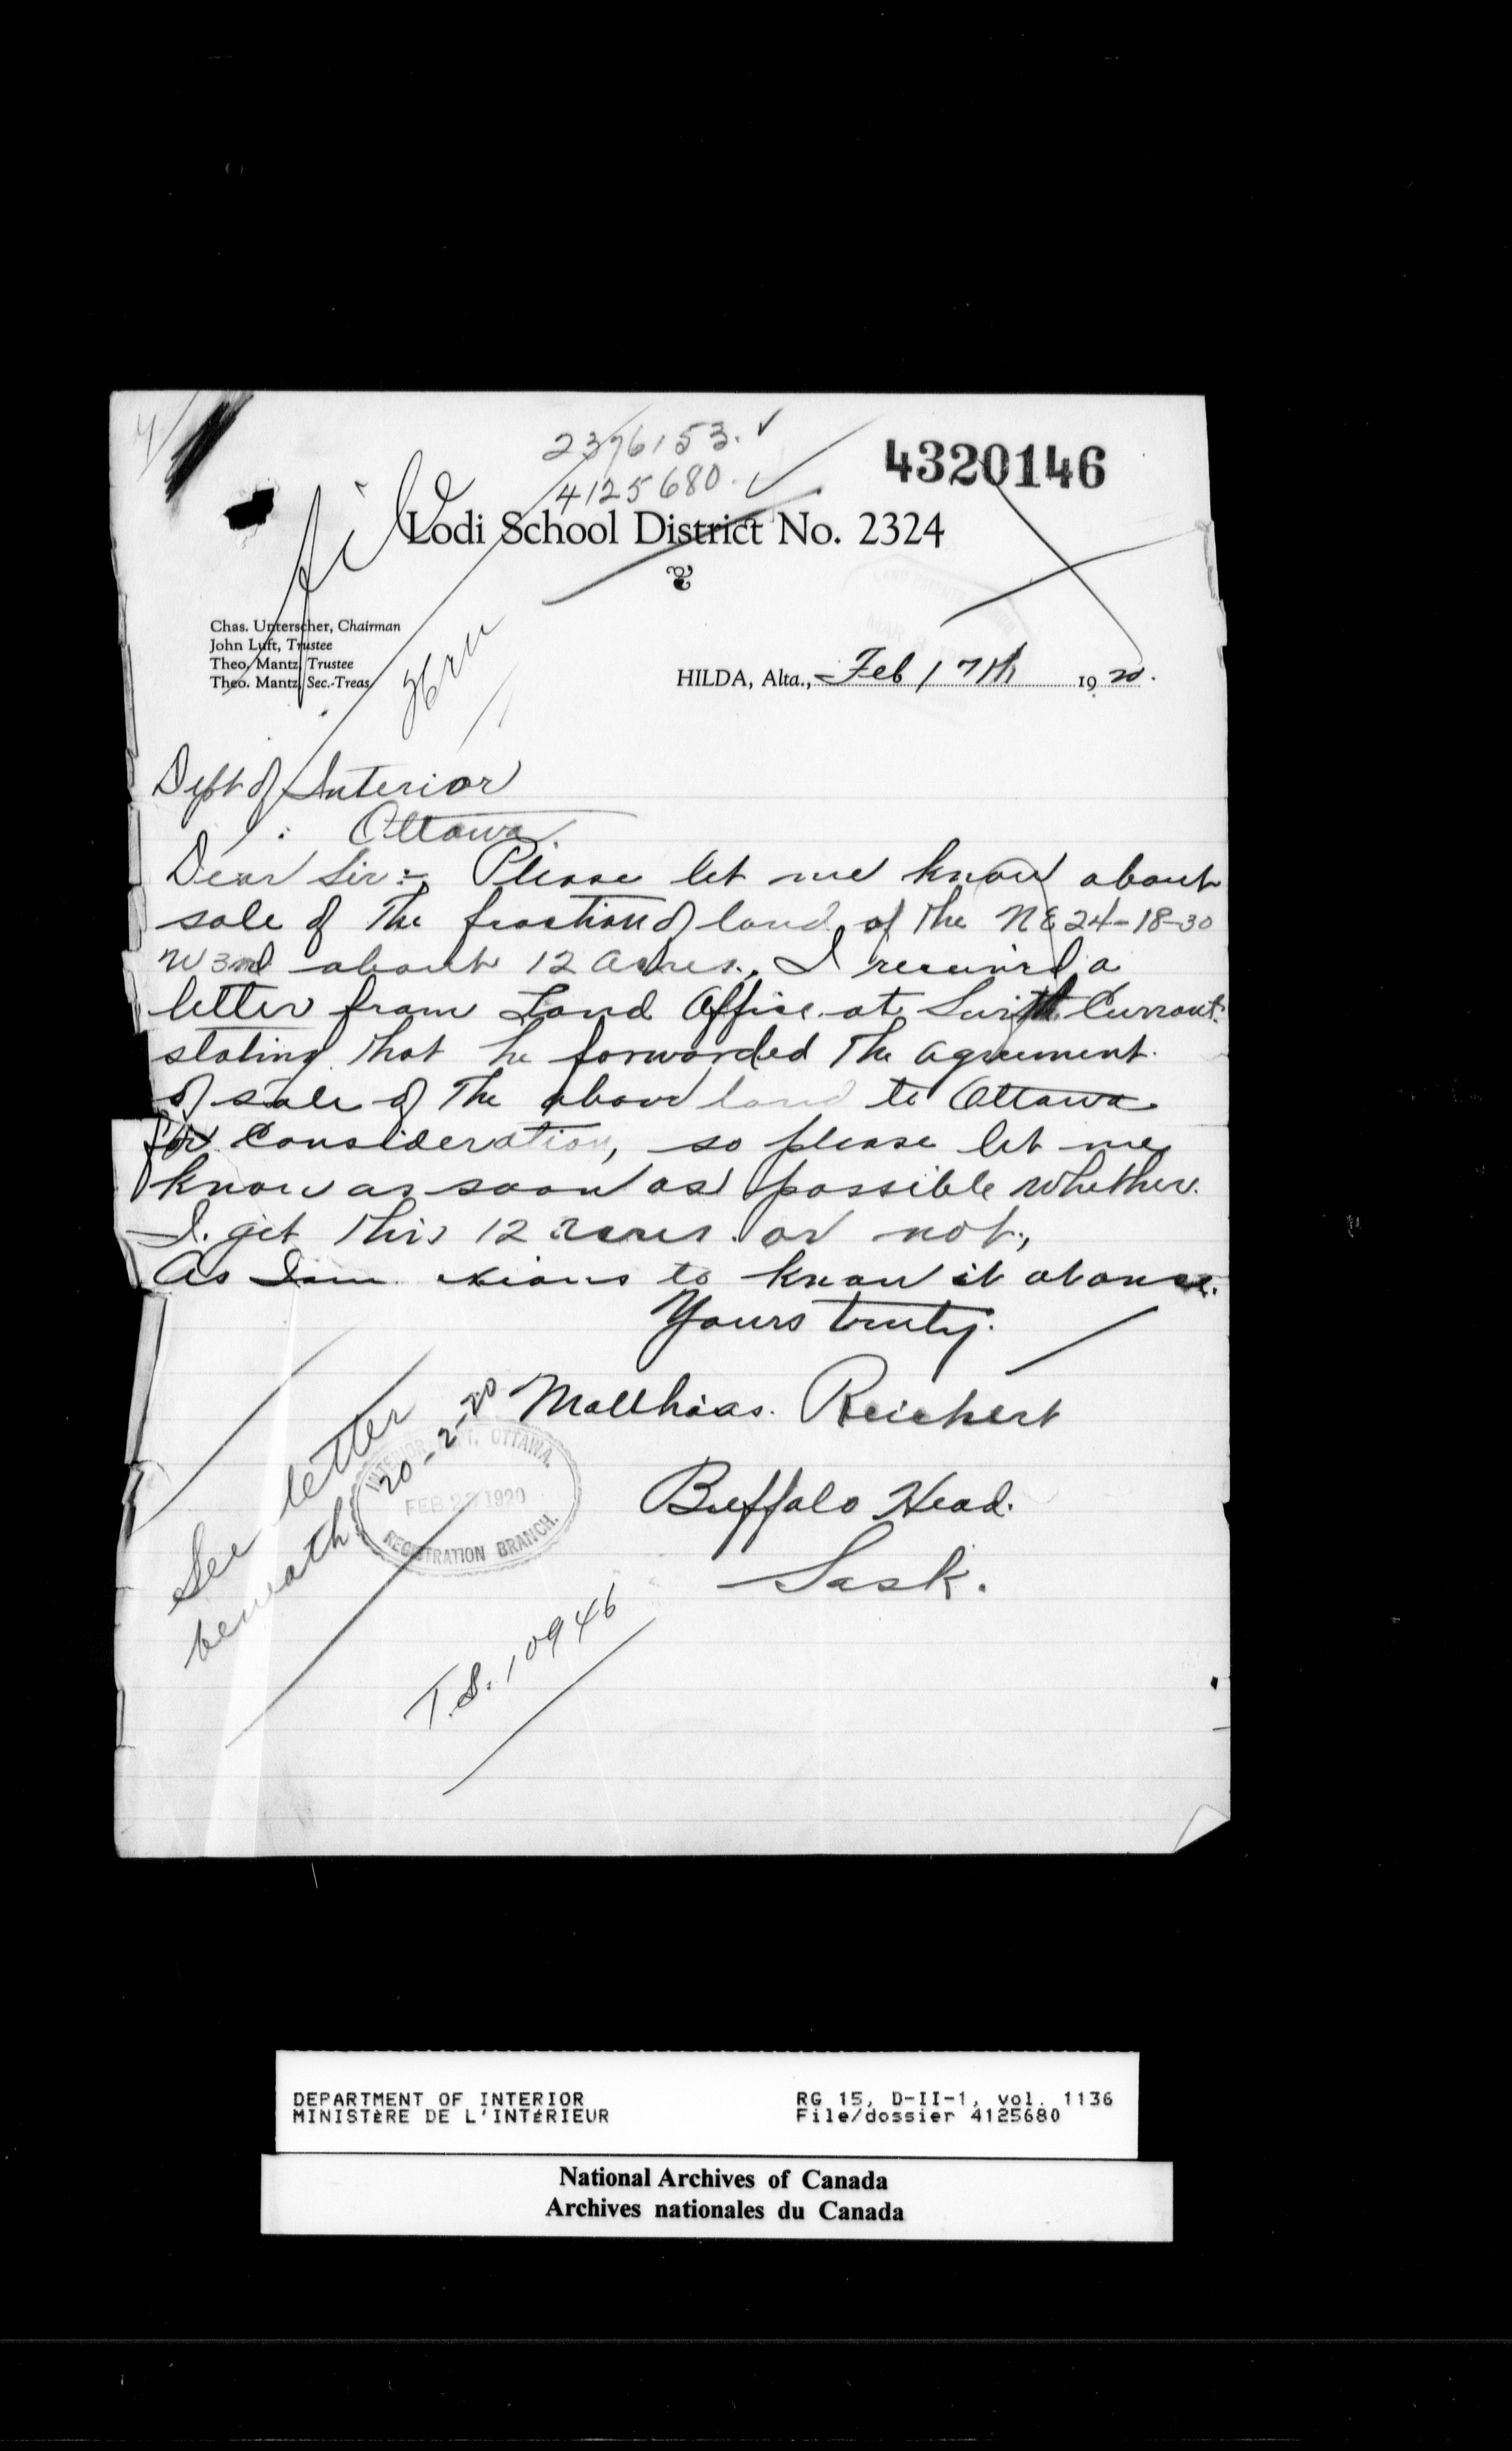 2376153. ✓
4125680. ✓
4320146
Lodi School District No. 2324
Chas. Unterscher, Chairman
John Luft, Trustee
Theo. Mantz, Trustee
Theo. Mantz, Sec.-Treas.
HILDA, Alta., Feb 17th 1920.
Dept of Interior
Ottawa.
Dear Sir:- Please let me know about
sale of the fraction of land of the NE 24-18-30
W 3rd about 12 acres. I received a
letter from Land Office at Swift Currant.
stating that he forwarded the agreement
of sale of the above land to Ottawa
for consideration, so please let me
know as soon as possible whether
I get this 12 acres or not,
As I am exious to know it at once.
Yours truly.
Matthias. Reichert
Buffalo Head.
Sask.
See letter
beneath 20-2-20
INTERIOR DEPT. OTTAWA.
FEB 23 1920
REGISTRATION BRANCH.
T.S. 10946
DEPARTMENT OF INTERIOR
MINISTÈRE DE L'INTÉRIEUR
RG 15, D-II-1, vol. 1136
File/dossier 4125680
National Archives of Canada
Archives nationales du Canada